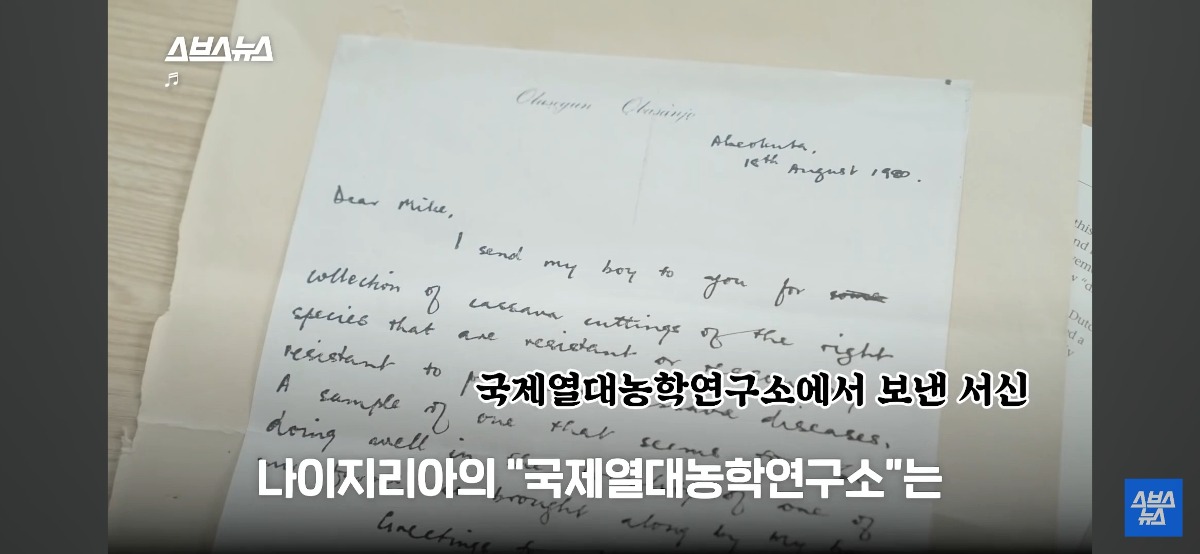 스브스뉴스
Olusegun Obasanjo
Abeokuta,
18th August 1980.
Dear Mike,
I send my boy to you for some
collection of cassava cuttings of the right
species that are resistant or
resistant to diseases.
A sample of one that seems
doing well in the of one of
brought along by my
Greetings
this
국제열대농학연구소에서 보낸 서신
나이지리아의 "국제열대농학연구소"는
스브스
뉴스